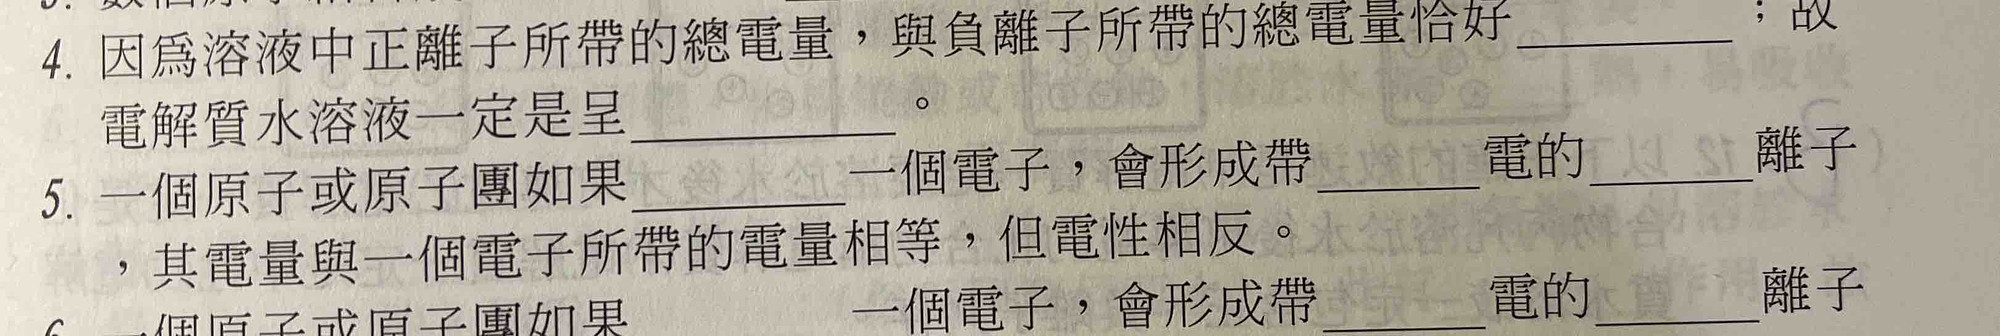 4. 因為溶液中正離子所帶的總電量，與負離子所帶的總電量恰好________；故
電解質水溶液一定是呈________。
5. 一個原子或原子團如果________一個電子，會形成帶________電的________離子
，其電量與一個電子所帶的電量相等，但電性相反。
6. 一個原子或原子團如果________一個電子，會形成帶________電的________離子